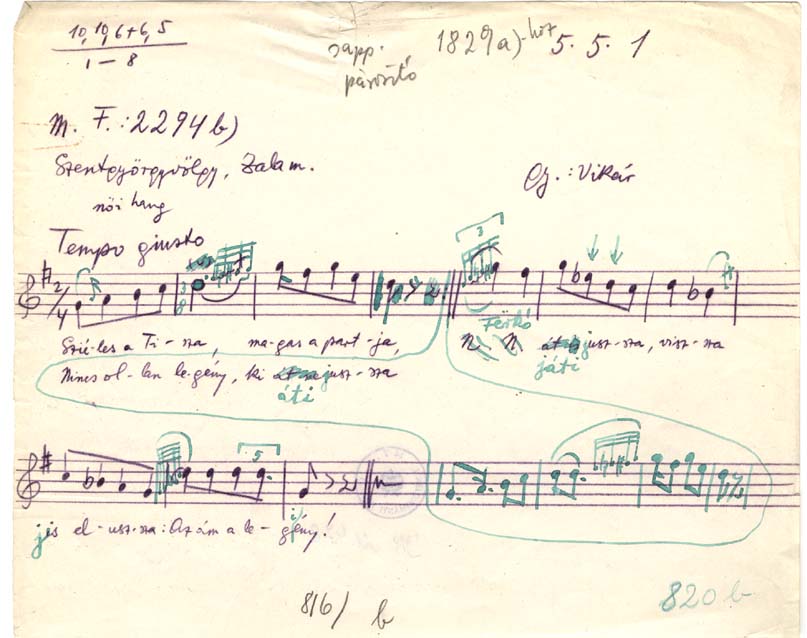 10, 10, 6+6, 5
1 — 8
sapp.
párosító
1829a)-hoz 5. 5. 1
M. F.: 2294 b)
Szentgyörgyvölgy, Zala m.
női hang
Gy.: Vikár
Tempo giusto
3
2/4
3
8
Szé-les a Ti-sza, ma-gas a part-ja,
Ferkó
jusz-sza, visz-sza
játi
Nincs ol-lan le-gény, ki jusz-sza
áti
5
jis el-usz-sza: Az ám a le-gény!
816/ b
820 b